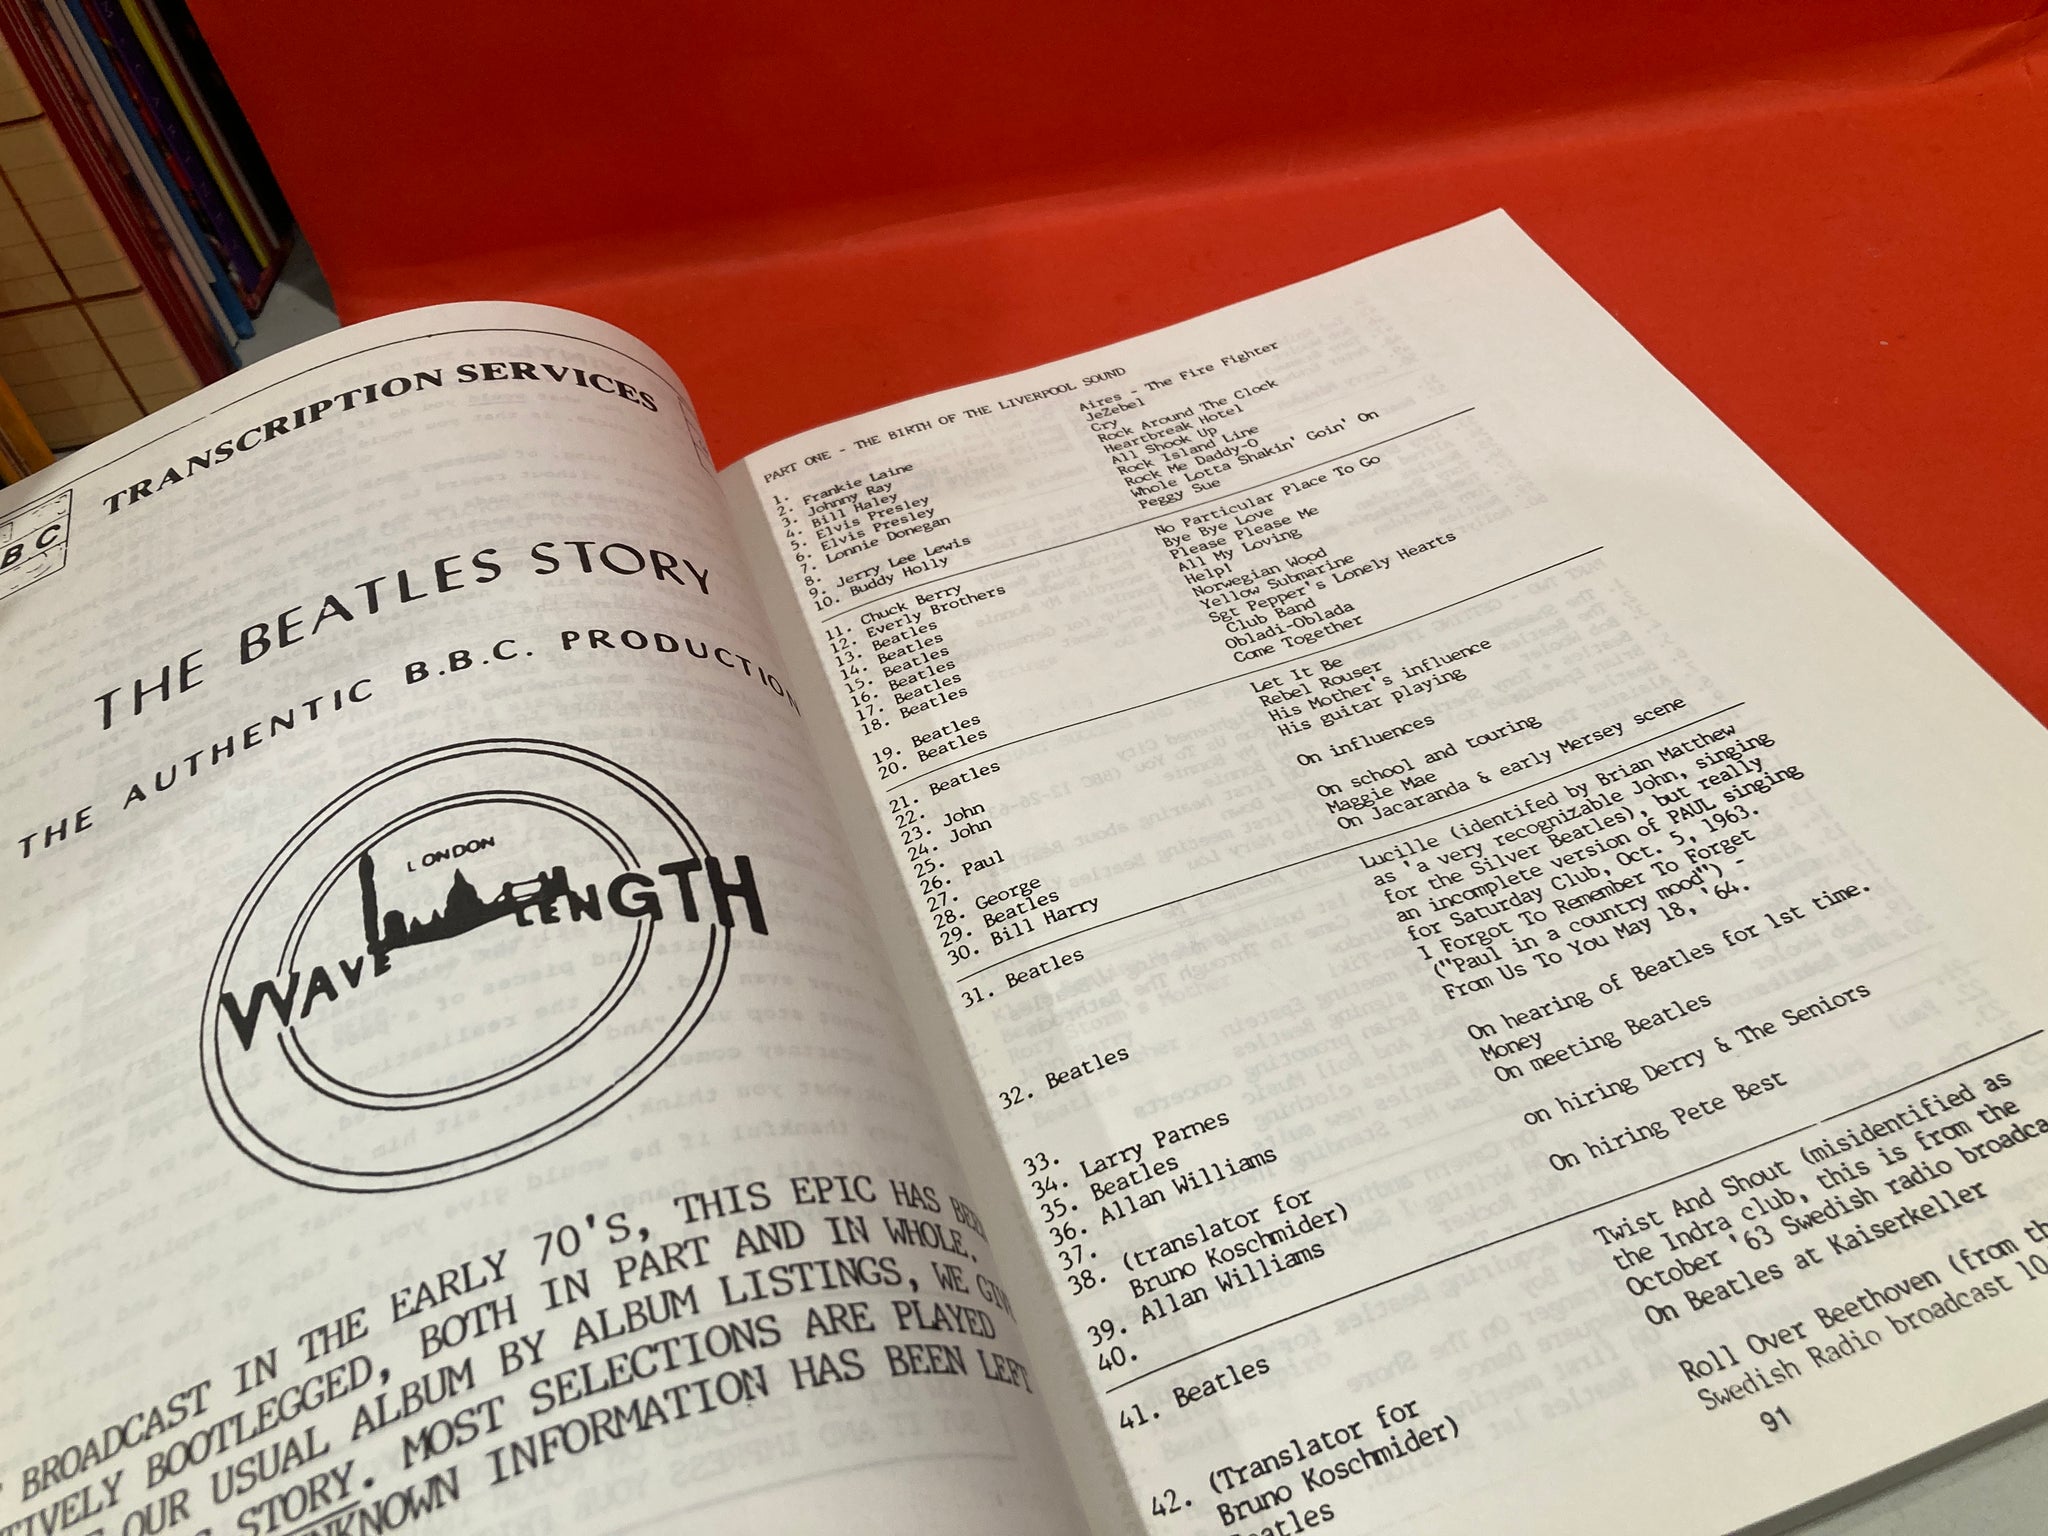 TRANSCRIPTION SERVICES
BBC
THE BEATLES STORY
THE AUTHENTIC B.B.C. PRODUCTION
LONDON
WAVELENGTH
BROADCAST IN THE EARLY 70'S, THIS EPIC HAS BEEN
BOOTLEGGED, BOTH IN PART AND IN WHOLE.
OUR USUAL ALBUM BY ALBUM LISTINGS, WE
STORY. MOST SELECTIONS ARE PLAYED
INFORMATION HAS BEEN LEFT
PART ONE - THE BIRTH OF THE LIVERPOOL SOUND
1. Frankie Laine
2. Johnny Ray
3. Bill Haley
4. Elvis Presley
5. Elvis Presley
6. Lonnie Donegan
7.
8. Jerry Lee Lewis
9. Buddy Holly
10.
11. Chuck Berry
12. Everly Brothers
13. Beatles
14. Beatles
15. Beatles
16. Beatles
17. Beatles
18. Beatles
19. Beatles
20. Beatles
21. Beatles
22.
23. John
24. John
25.
26. Paul
27.
28. George
29. Beatles
30. Bill Harry
31. Beatles
32. Beatles
33.
34. Larry Parnes
35. Beatles
36. Allan Williams
37.
38. (translator for
Bruno Koschmider)
39. Allan Williams
40.
41. Beatles
42. (Translator for
Bruno Koschmider)
Aires - The Fire Fighter
JeZebel
Cry
Rock Around The Clock
Heartbreak Hotel
All Shook Up
Rock Island Line
Rock Me Daddy-O
Whole Lotta Shakin' Goin' On
Peggy Sue
No Particular Place To Go
Bye Bye Love
Please Please Me
All My Loving
Help!
Norwegian Wood
Yellow Submarine
Sgt Pepper's Lonely Hearts
Club Band
Obladi-Oblada
Come Together
Let It Be
Rebel Rouser
His Mother's influence
His guitar playing
On influences
On school and touring
Maggie Mae
On Jacaranda & early Mersey scene
Lucille (identifed by Brian Matthew
as 'a very recognizable John, singing
for the Silver Beatles), but really
an incomplete version of PAUL singing
for Saturday Club, Oct. 5, 1963.
I Forgot To Remember To Forget
("Paul in a country mood") -
From Us To You May 18, '64.
On hearing of Beatles for 1st time.
Money
On meeting Beatles
on hiring Derry & The Seniors
On hiring Pete Best
Twist And Shout (misidentified as
the Indra club, this is from the
October '63 Swedish radio
On Beatles at Kaiserkeller
Roll Over Beethoven (from
Swedish Radio broadcast
91